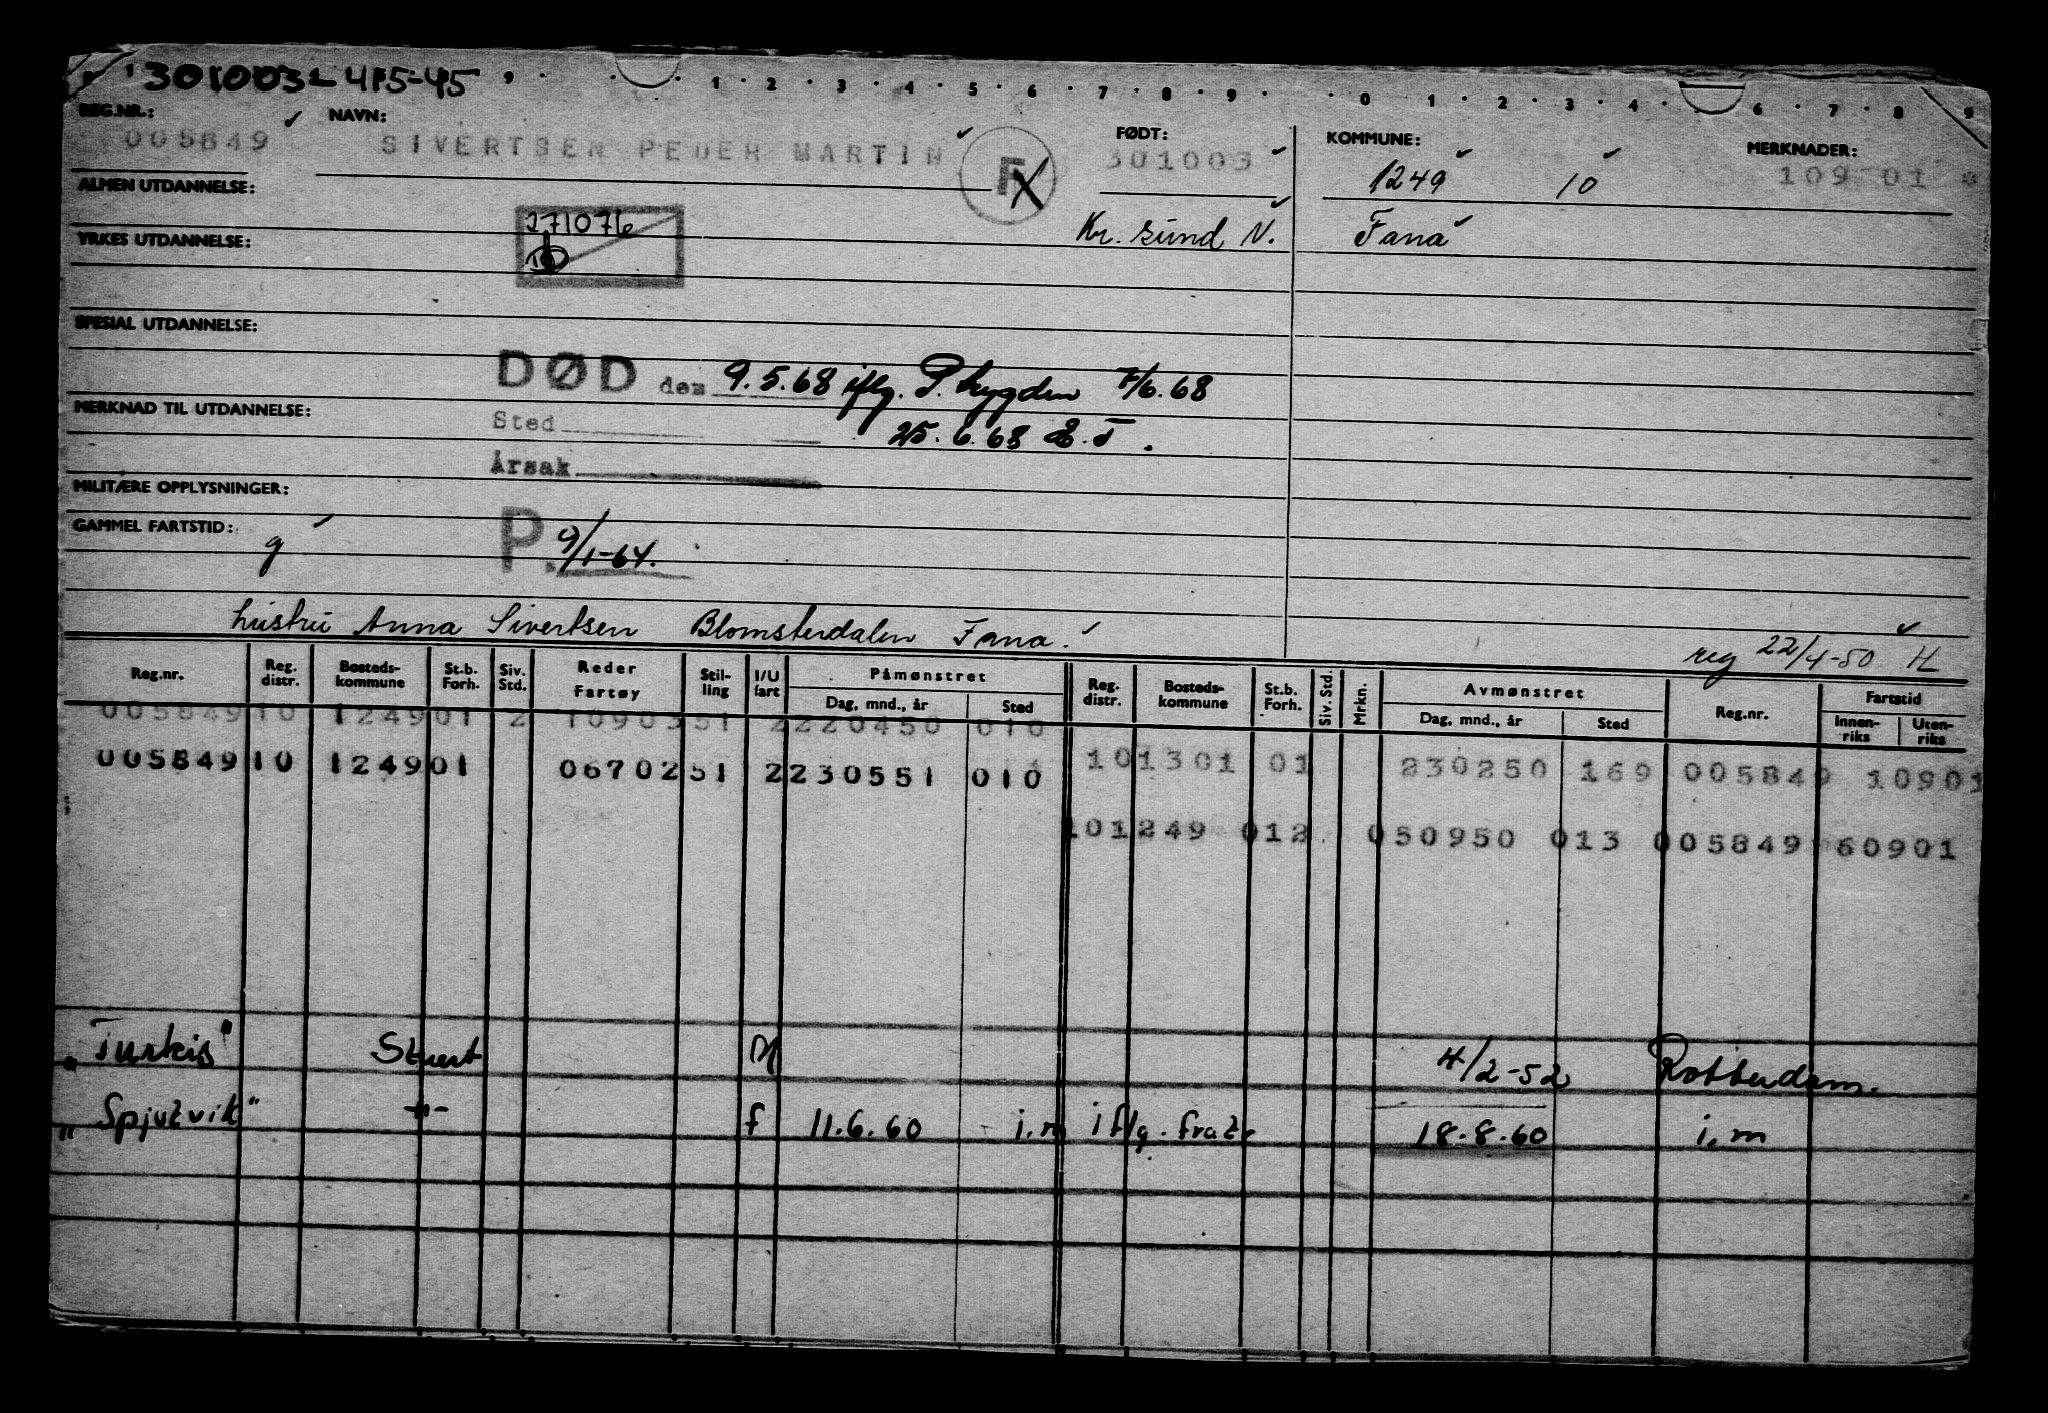 3010032 415-45
9 · 1 · 2 · 3 · 4 · 5 · 6 · 7 · 8 · 9 · · 0 · 1 · 2 · 3 · 4 · 6 · 7 · 8 · 9
REG.NR.: NAVN: FØDT: KOMMUNE: MERKNADER:
005849 ✓ SIVERTSEN PEDER MARTIN ✓ F X 301003 ✓ 1249 ✓ 10 ✓ 109 01 *
ALMEN UTDANNELSE:
271076
Kr. sund N. ✓ Fana ✓
YRKES UTDANNELSE:
SPESIAL UTDANNELSE:
DØD den 9.5.68 iflg. P. trygden 7/6.68
MERKNAD TIL UTDANNELSE:
Sted 25.6.68 E.T.
Årsak
MILITÆRE OPPLYSNINGER:
GAMMEL FARTSTID: g ✓ P. 9/1-64.
hustru Anna Sivertsen Blomsterdalen Fana. ✓
reg 22/4-50 H ✓
Reg.nr. Reg. distr. Bosteds-kommune St.b. Forh. Siv. Std. Reder Fartøy Stil-ling I/U fart Påmønstret Dag, mnd., år Sted Reg. distr. Bosteds-kommune St.b. Forh. Siv. Std. Mrkn. Avmønstret Dag, mnd., år Sted Reg.nr. Fartstid Innen-riks Uten-riks
005849 10 1249 01 2 10903 51 2 220450 010
005849 10 1249 01 06702 51 2 230551 010 10 1301 01 230250 169 005849 10901
10 1249 012 050950 013 005849 60901
"Turkis" Stuert M 4/2-52 Rotterdam.
"Spjutvik" -"- f 11.6.60 i.m iflg. fratr 18.8.60 i.m